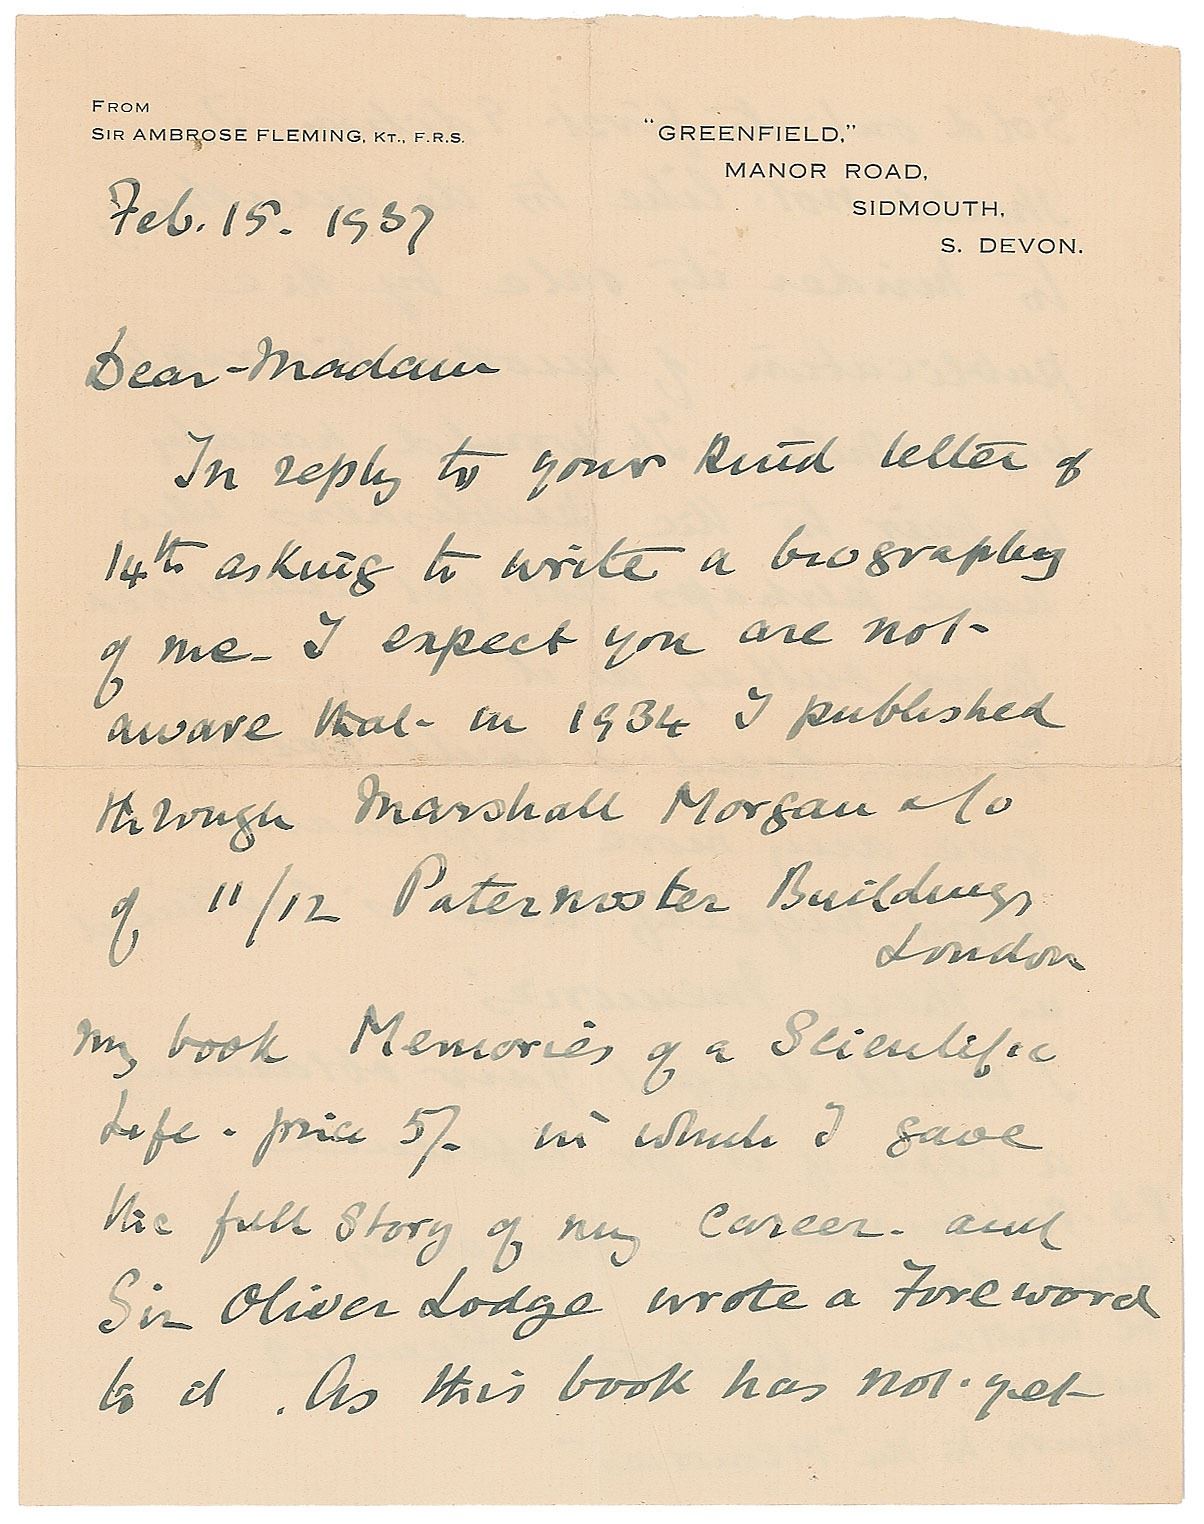 FROM
SIR AMBROSE FLEMING, KT., F.R.S.
"GREENFIELD,"
MANOR ROAD,
SIDMOUTH,
S. DEVON.
Feb. 15. 1937
Dear Madam
In reply to your kind letter of
14th asking to write a biography
of me - I expect you are not
aware that in 1934 I published
through Marshall Morgan
of 11/12 Paternoster Buildings
London
my book Memories of a Scientific
Life - price 5/- in which I gave
the full story of my career - and
Sir Oliver Lodge wrote a Foreword
to it. As this book has not yet